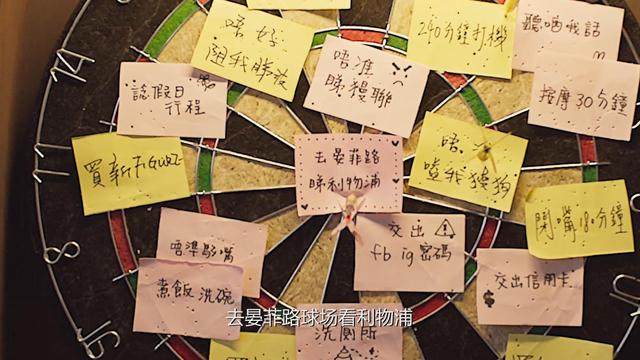 唔好
阻我睇波
240分鐘打機
聽晒我話
唔准
睇曼聯
諗假日
行程
按摩30分鐘
14
11
8
買新Figure
去晏菲路
睇利物浦
唔准
嗌我豬狗
閉嘴180分鐘
唔準駁嘴
煮飯洗碗
交出
fb ig密碼
交出信用卡
$
洗廁所
去晏菲路球场看利物浦